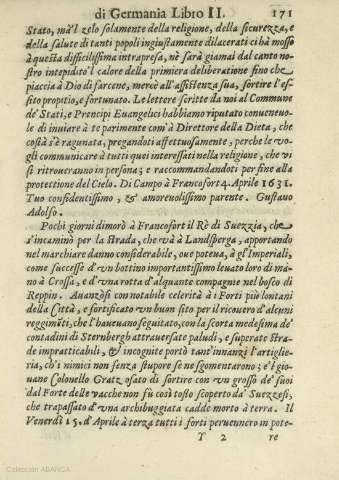 di Germania Libro II. 171
Stato, mà'l zelo solamente della religione, della sicurezza, e
della salute di tanti popoli ingiustamente dilacerati ci hà mosso
à questa difficilissima intrapresa, nè sarà giamai dal canto no-
stro intepidito'l calore della primiera deliberatione fino che
piaccia à Dio di farcene, mercè all'assistenza sua, sortire l'es-
sito propitio, e fortunato. Le lettere scritte da noi al Commune
de' Stati, e Prencipi Euangelici habbiamo riputato conueneuo-
le di inuiare à te parimente com'à Direttore della Dieta, che
costà s'è ragunata, pregandoti affettuosamente, perche le vo-
gli communicare à tutti quei interessati nella religione, che vi
si ritroueranno in persona; e raccommandandoti per fine alla
protettione del Cielo. Di Campo à Francofort 4. Aprile 1631.
Tuo confidentissimo, & amoreuolissimo parente. Gustauo
Adolfo.
Pochi giorni dimorò à Francofort il Rè di Suezzia, che
s'incaminò per la strada, che và à Landsperg, apportando
nel marchiare danno considerabile, oue poteua, à gl'Imperiali,
come successe d'vn bottino importantissimo leuato loro di ma-
no à Crossa, e d'vna rotta d'alquante compagnie nel bosco di
Reppin. Auanzòsi con notabile celerità à i Forti più lontani
della Città, e fortificato vn buon sito per il ricouero d'alcuni
reggimẽti, che l'haueuano seguitato, con la scorta medesima de'
contadini di Sternbergh attrauersate paludi, e superate stra-
de impratticabili, & incognite portò tant'innanzi l'artiglie-
ria, ch'i nimici non senza stupore se ne sgomentarono; e'l gio-
uane Colonello Gratz osato di sortire con vn grosso de' suoi
dal Forte delle vacche non fù così tosto scoperto da' Suezzesi,
che trapassato d'vna archibuggiata cadde morto à terra. Il
Venerdì 15. d'Aprile à terza tutti i forti peruennero in pote-
Y 2 re
Colección ABANCA